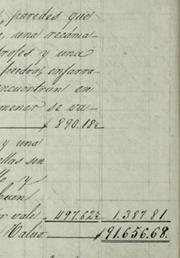 paredes que
una recáma-
trojes y una
piedra, enjarra-
encuentran en
menor de va-
$890.18¢
y una
llas son
y
buen
r vale 497.62¢ 1,387 81
Valor $91.656.68.